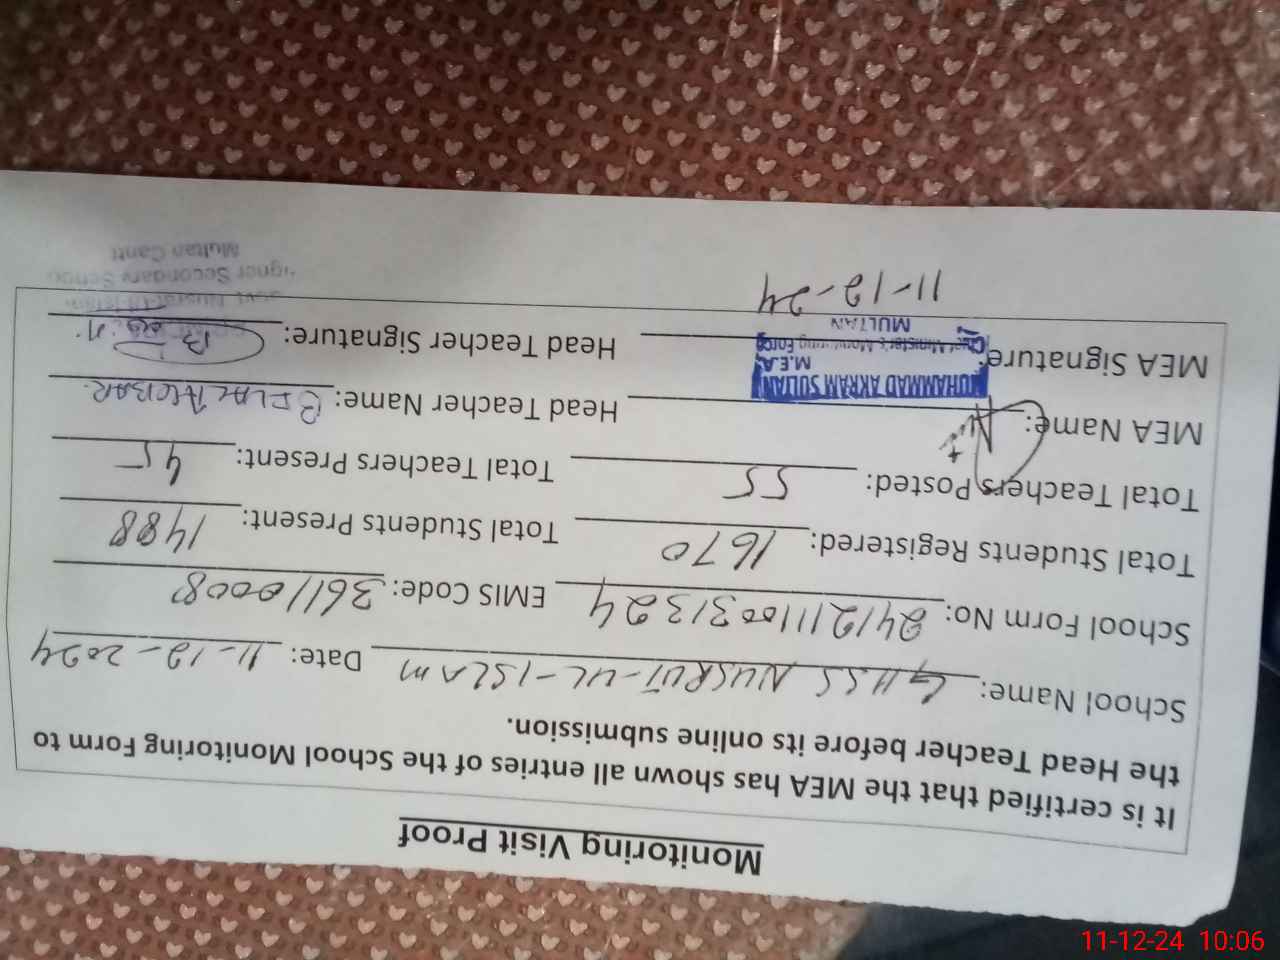 Monitoring Visit Proof
It is certified that the MEA has shown all entries of the School Monitoring Form to
the Head Teacher before its online submission.
School Name: GHSS NUSRUT-UL-ISLAM Date: 11-12-2024
School Form No: 24121110031324 EMIS Code: 36110008
Total Students Registered: 1670 Total Students Present: 1488
Total Teachers Posted: 55 Total Teachers Present: 45
MEA Name: Head Teacher Name: BILAL AKBAR
MUHAMMAD AKRAM SULTAN
M.E.A
MEA Signature: Head Teacher Signature:
Chief Minister's Monitoring Force
MULTAN
11-12-24
Govt. Nusrat-ul-Islam
Higher Secondary School
Multan Cantt
11-12-24 10:06